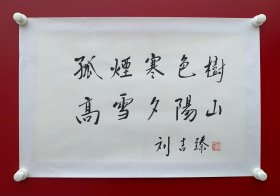 孤煙寒色樹
高雪夕陽山
刘吉臻